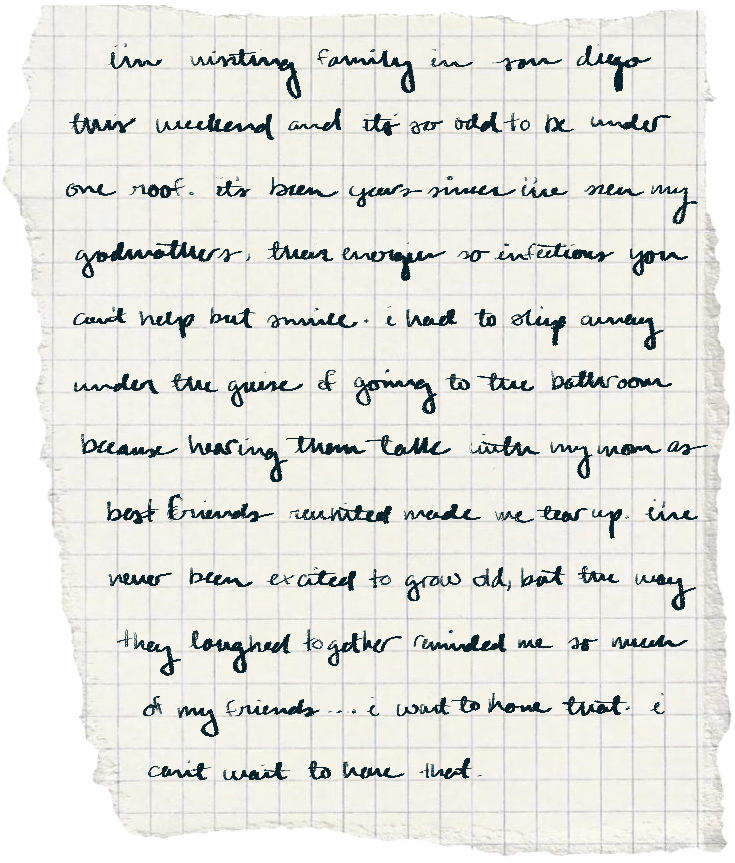 i'm visiting family in san diego
this weekend and it's so odd to be under
one roof. it's been years since i've seen my
godmothers, their energies so infectious you
can't help but smile. i had to slip away
under the guise of going to the bathroom
because hearing them talk with my mom as
best friends reunited made me tear up. i've
never been excited to grow old, but the way
they laughed together reminded me so much
of my friends.... i want to have that. i
can't wait to have that.